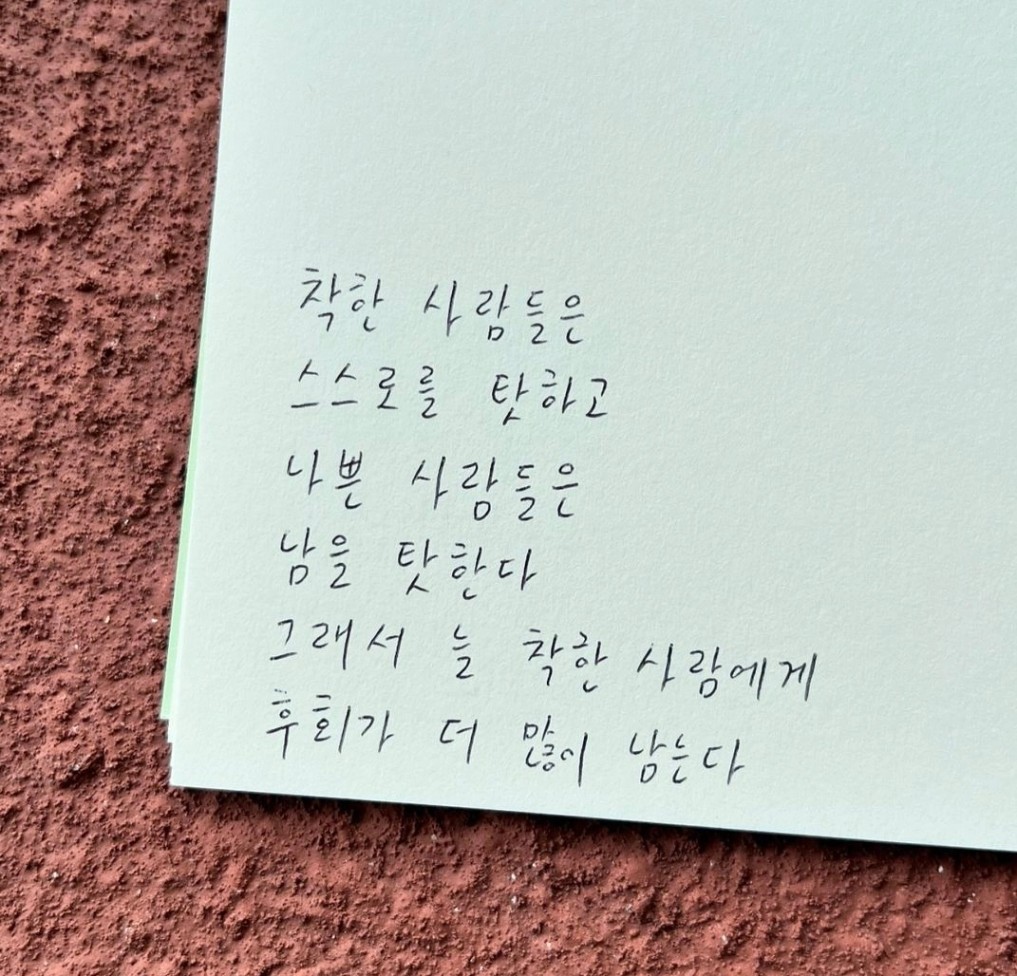 착한 사람들은
스스로를 탓하고
나쁜 사람들은
남을 탓한다
그래서 늘 착한 사람에게
후회가 더 많이 남는다